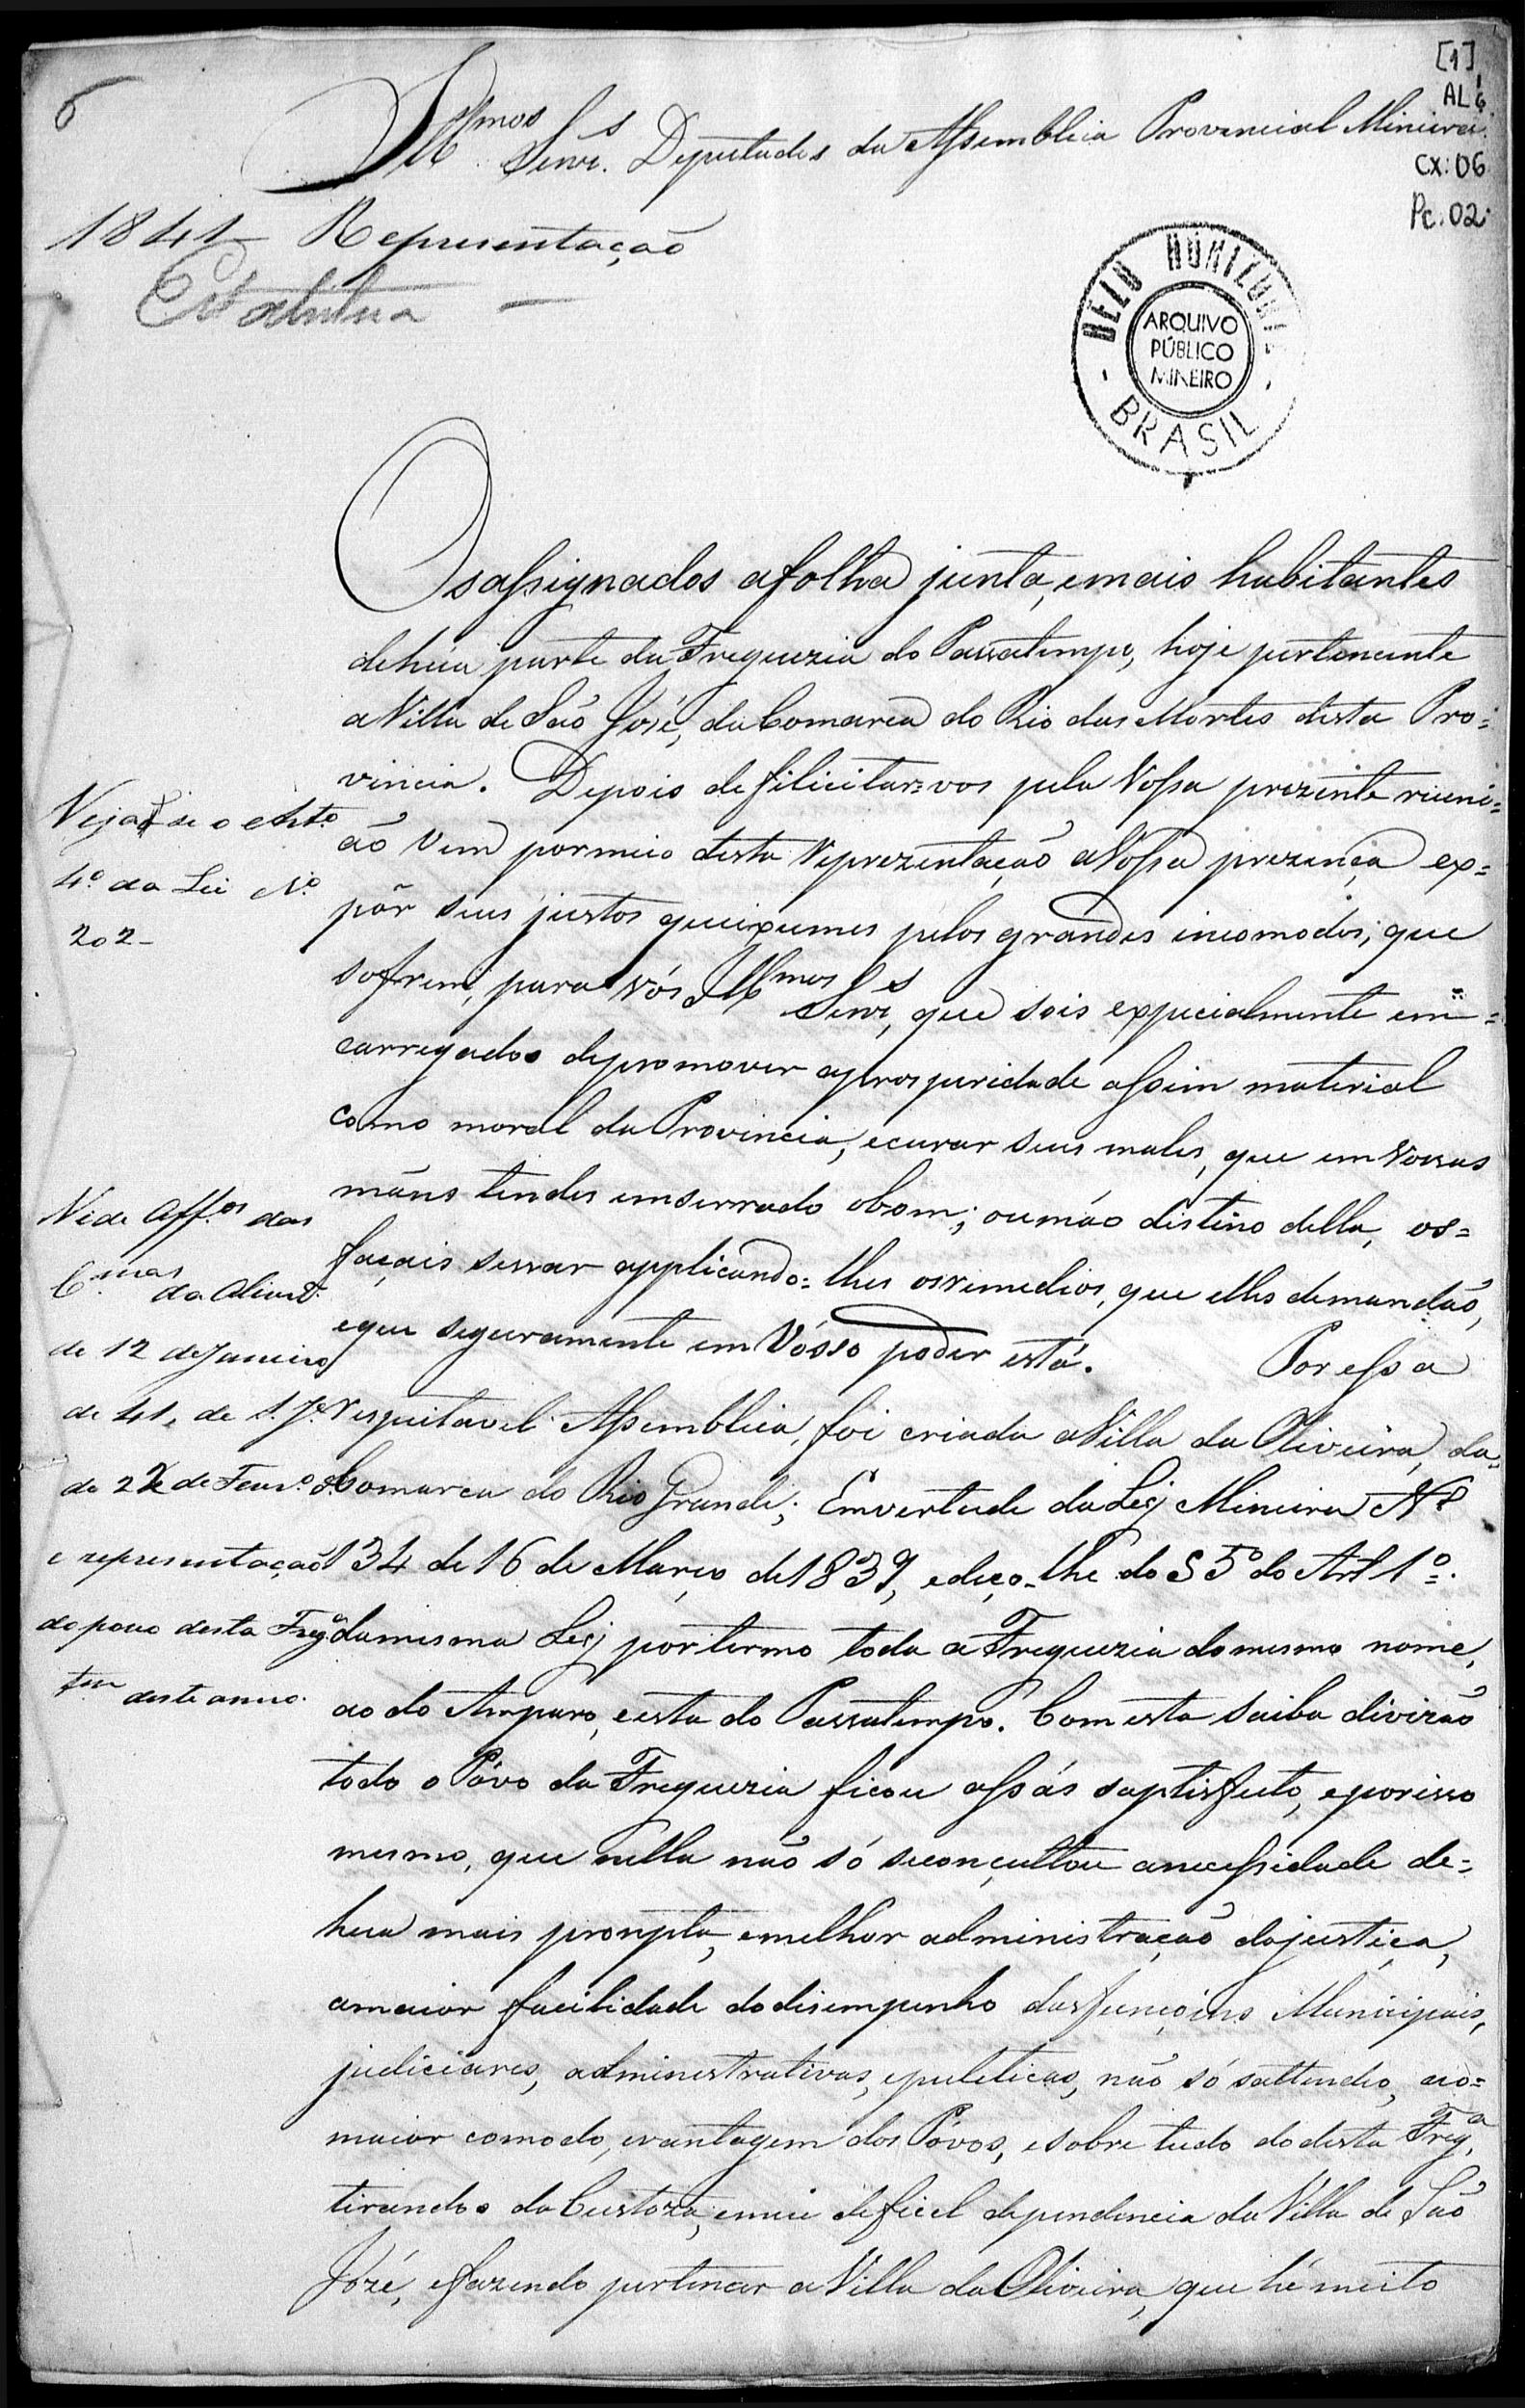 6
[1]
AL 6
CX: 06
Pc. 02
Illmos Senrs. Deputados da Assemblea Provencial Mineira.
1841 Representação
Estatistica
BELO HORIZONTE
ARQUIVO
PÚBLICO
MINEIRO
BRASIL
Os assignados a folha junta, e mais habitantes
de húa parte da Freguezia do Passatempo, hoje pertencente
a Villa de São José, da Comarca do Rio das Mortes desta Pro=
vincia. Depois de filicitar=vos pela Vossa prezente rieuni=
ão vem por meio desta Reprezentação a Vossa prezença ex=
pôr seus justos queixumes pelos grandes incomodos, que
sofrem, para vós Illmos Senrs, que sois expecialmente em=
carregados de promover a prosperidade assim material
como moral da Provincia, e curar seus males, que em Vossas
mãns tendes emserrado o bom, ou máo distino della, os=
façais sessar applicando=lhes os remedios, que elles demandão,
e que seguramente em Vósso poder está. Por essa
respeitavel Assemblea, foi criada a Villa da Oliveira, da
Comarca do Rio Grande; Em vertude da Lej Mineira No
134 de 16 de Março de 1839, e deço-lhe do § 5º do Art 1º.
da mesma Lej por termo toda a Freguezia do mesmo nome,
ao do Amparo, e esta do Passatempo. Com esta saiba divizão
todo o Póvo da Freguezia ficou assás saptisfeito, e por isso
mesmo, que nella não só se conçultou a necessidade de=
hua mais prompta, e melhor administração da justiça,
a maior facilidade do disempenho das funçoins Municipais,
judiciares, administrativas, e puliticas, não só sattendeo, ao=
maior comodo, e vantagem dos Póvos, e sobre tudo do desta Freg.a
tirando o da Custoza, e mui deficel dependencia da Villa de São
Jozé, e fazendo pertencer a Villa da Oliveira, que hé muito
Veja se o Arto
4º da Lei No
202-
Vide Off.os das
C.mas da Olivra.
de 12 de Janeiro
de 41, de S. Je
de 22 de Fevr.o
e representação
do povo desta Frega
deste anno.